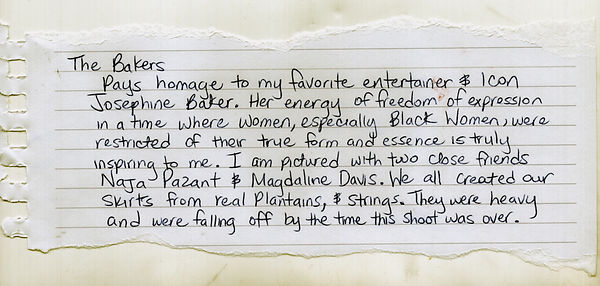 The Bakers
Pays homage to my favorite entertainer & Icon
Josephine Baker. Her energy of freedom of expression
in a time where women, especially Black Women, were
restricted of their true form and essence is truly
inspiring to me. I am pictured with two close friends
Naja Pazant & Magdaline Davis. We all created our
skirts from real Plantains, & strings. They were heavy
and were falling off by the time this shoot was over.